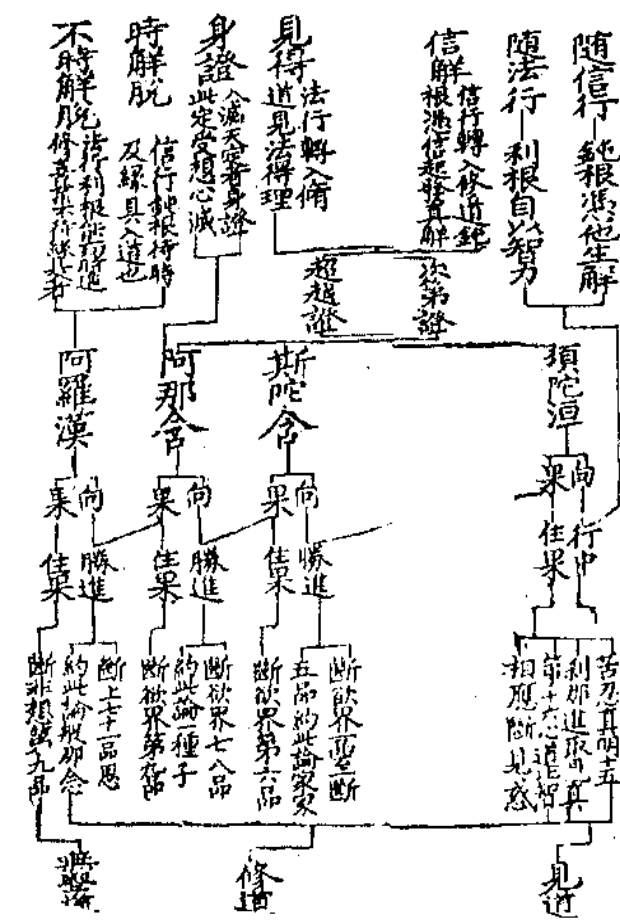 隨信行
鈍根憑他生解
隨法行
利根自以智力
信解
信行轉入修道鈍
根憑信起發真解
見得
法行轉入修
道見法得理
身證
入滅天定者身證
此定受想心滅
時解脫
信行鈍根待時
及緣具入道也
不時解脫
法行利根能
次第證
超越證
須陀洹
斯陀含
阿那含
阿羅漢
向
果
向
果
向
果
向
果
行中
住果
勝進
住果
勝進
住果
勝進
住果
苦忍真明十五
剎那進取
真
第十六心道智
相應斷見惑
斷欲界一至
五品約此論家家
斷欲界第六品
斷欲界七八品
約此論一種子
斷欲界第九品
斷上七十一品思
約此論般那含
斷非想第九品
見道
修道